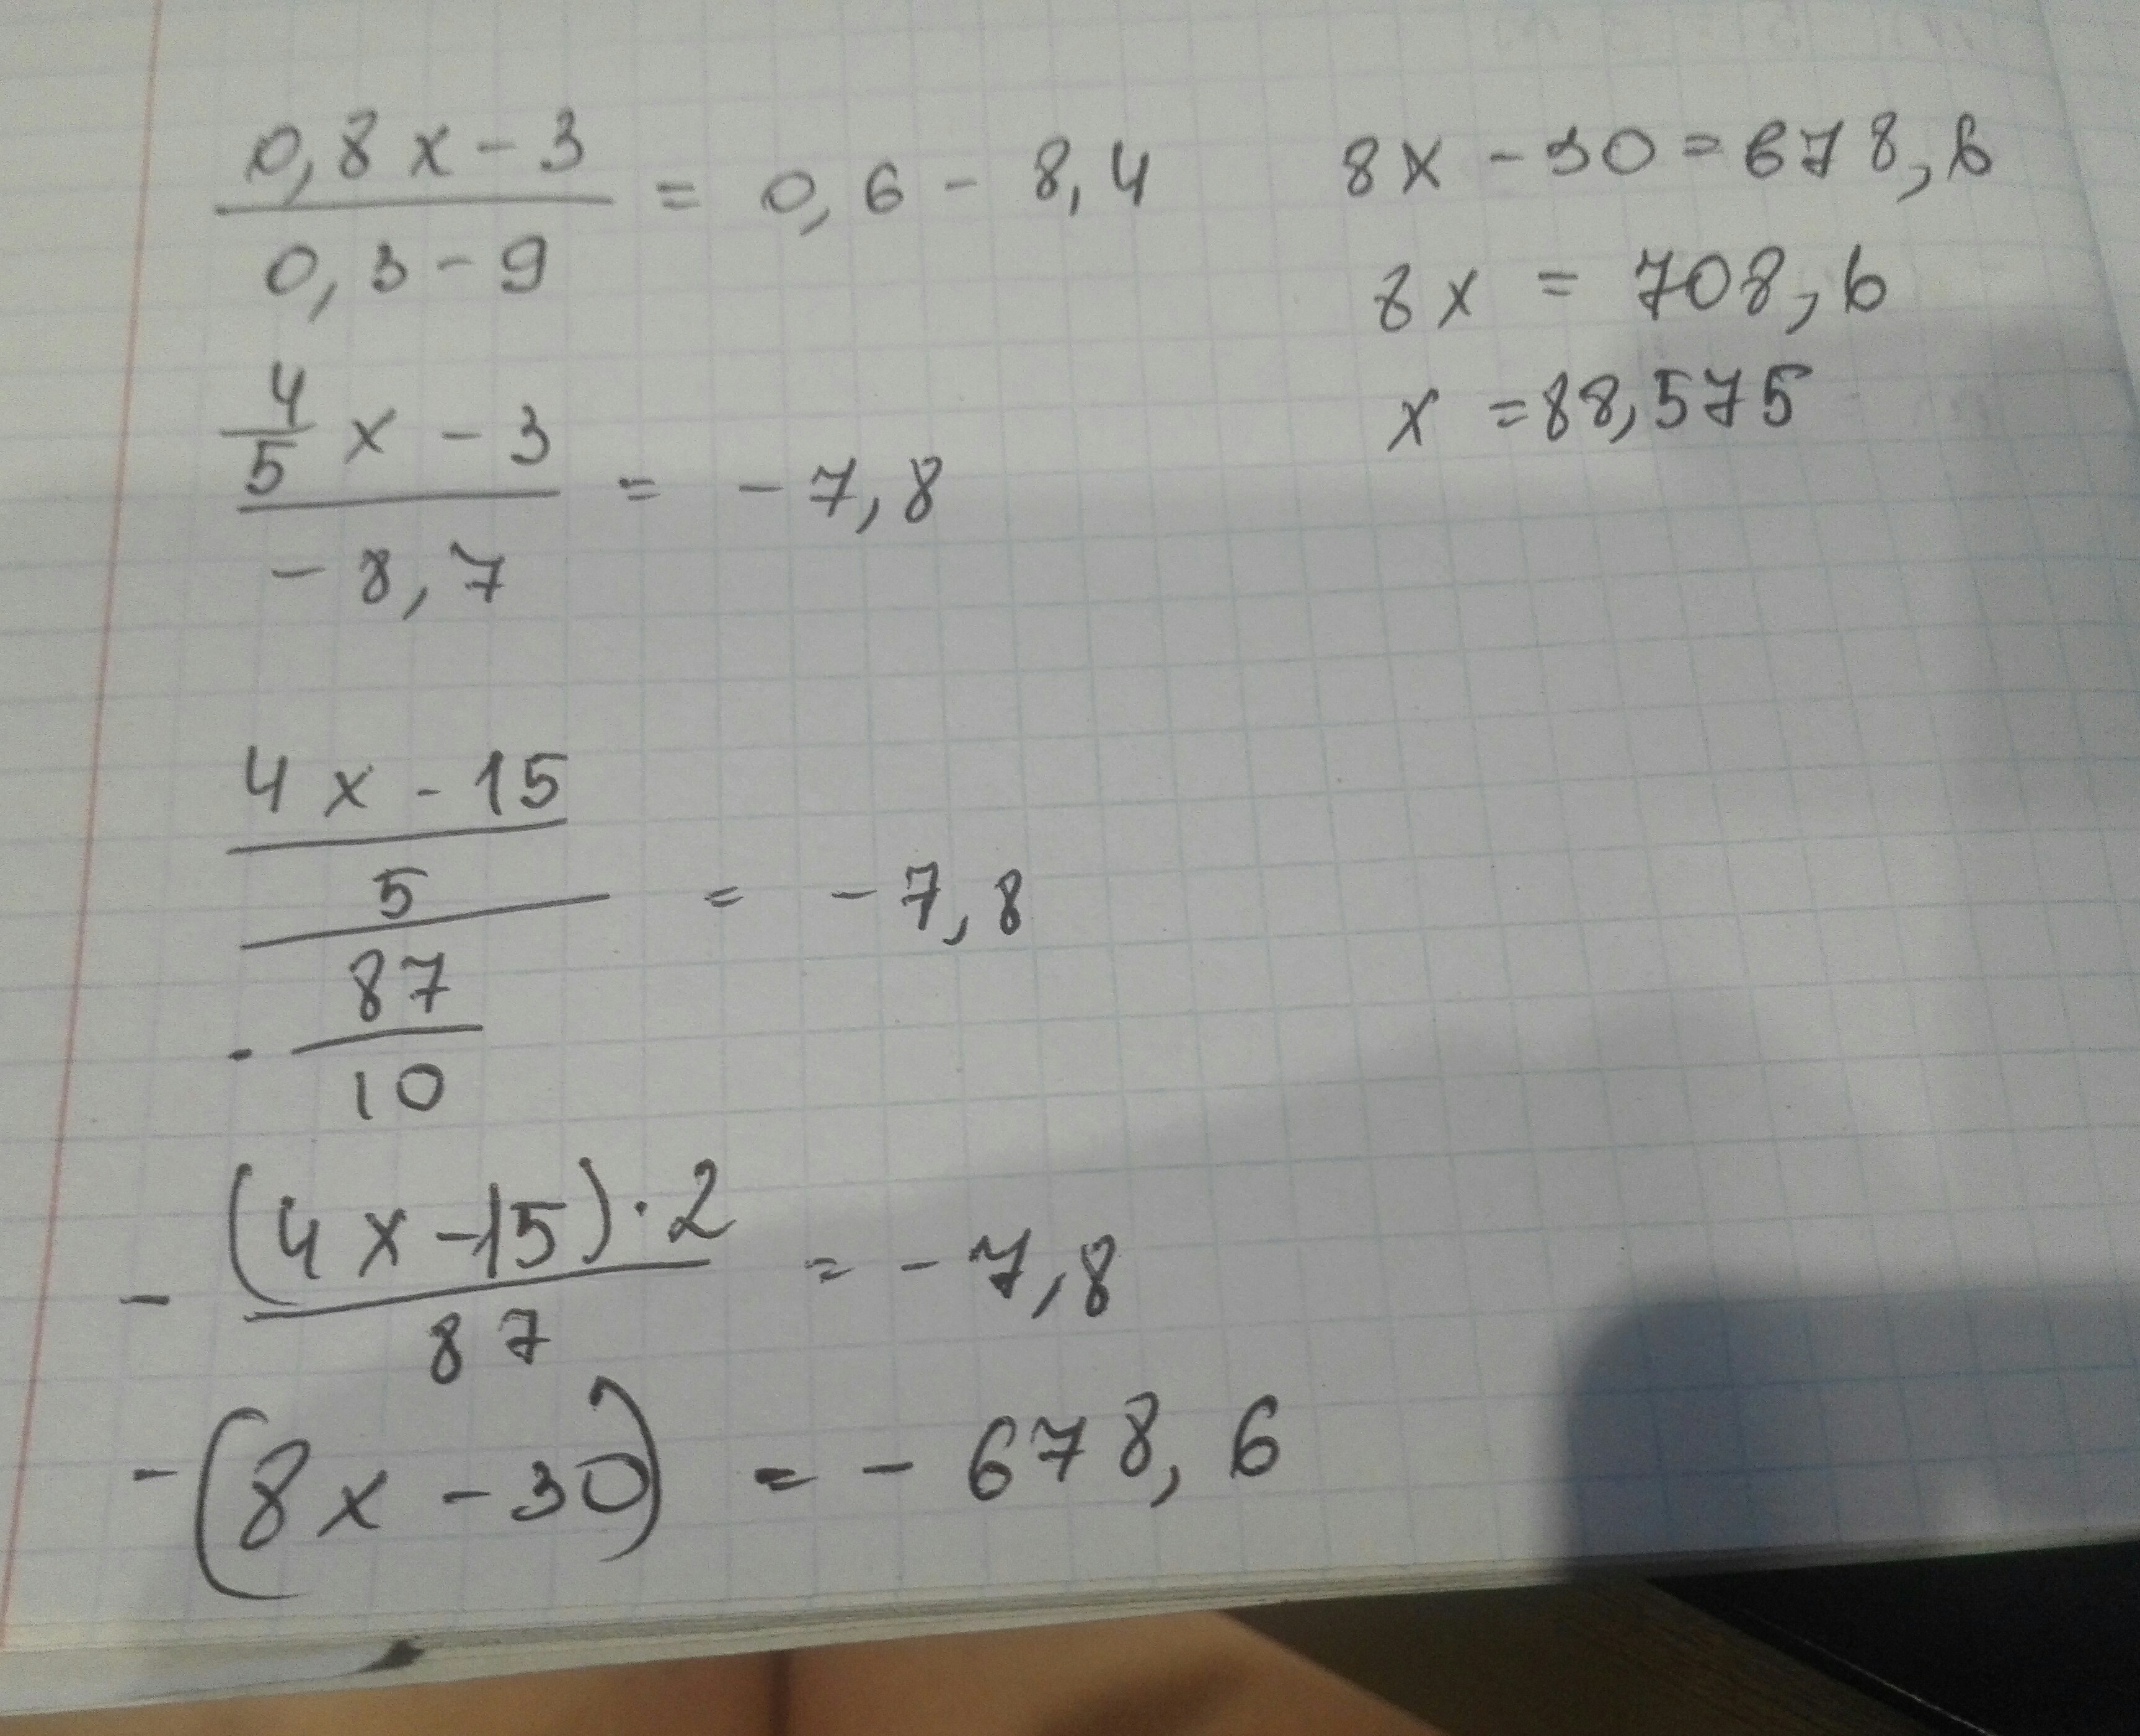 0,8x-3
――― = 0,6 - 8,4
0,3-9
4/5 x - 3
――― = -7,8
-8,7
4x-15
―――
5
――― = -7,8
- 87/10
- (4x-15)·2
――― = -7,8
87
-(8x-30) = -678,6
8x-30=678,6
8x = 708,6
x =88,575